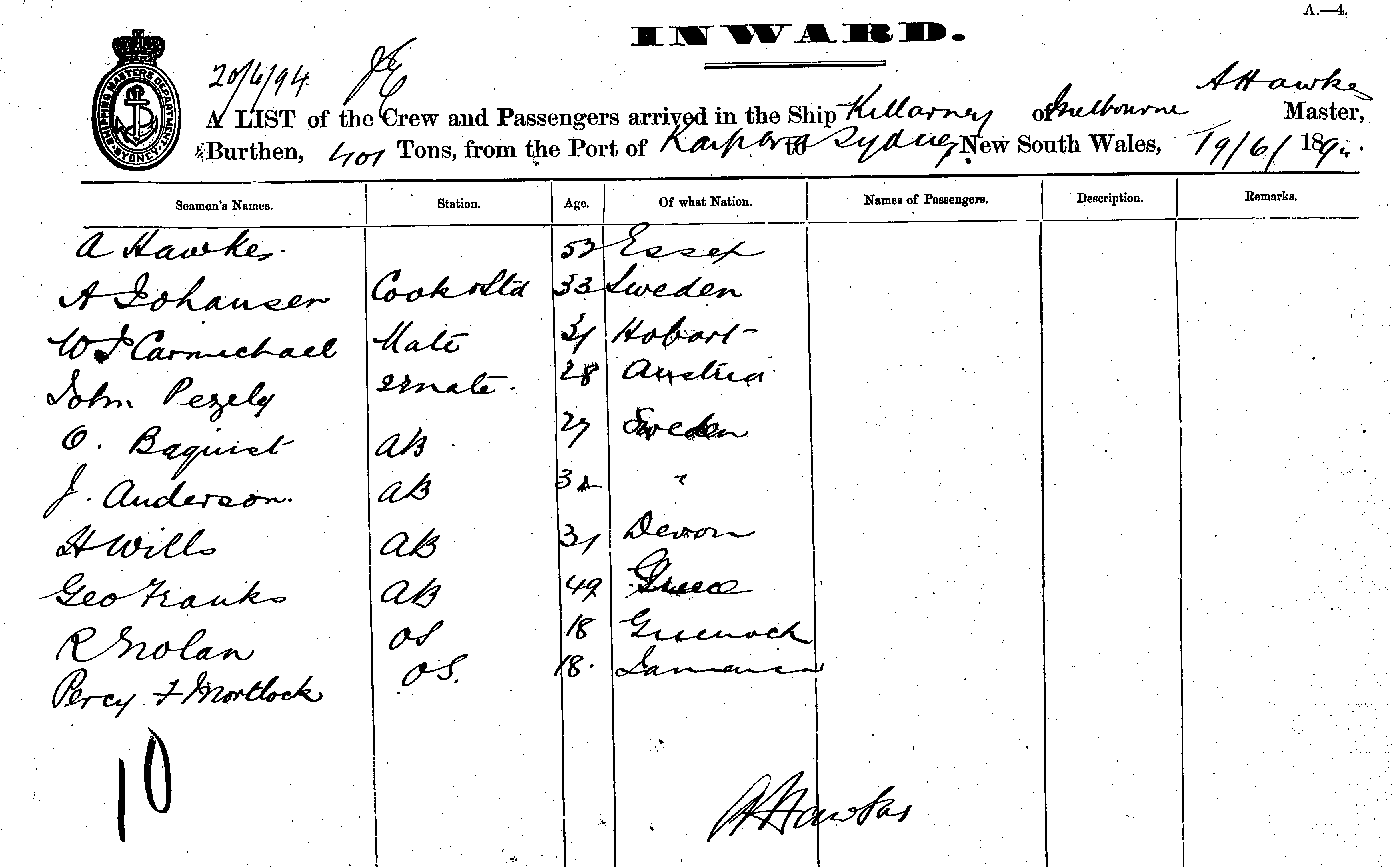 A.—4.
INWARD.
SHIPPING MASTERS DEPARTMENT SYDNEY
20/6/94 JE
A LIST of the Crew and Passengers arrived in the Ship Killarney of Melbourne A Hawke Master,
Burthen, 401 Tons, from the Port of to Sydney New South Wales, 19/6/ 189
Seamen's Names. Station. Age. Of what Nation. Names of Passengers. Description. Remarks.
A Hawkes 53 Essex
A Johansen Cook & Std 33 Sweden
W J Carmichael Mate 31 Hobart
John Pezely 2nd mate. 28 Austria
O. Baquist AB 27 Sweden
J. Anderson. AB 32 "
H Wills AB 31 Devon
Geo Franks AB 49 Greece
R Nolan OS 18 Greenock
Percy F Mortlock OS. 18. Jamaica
10
A Hawkes